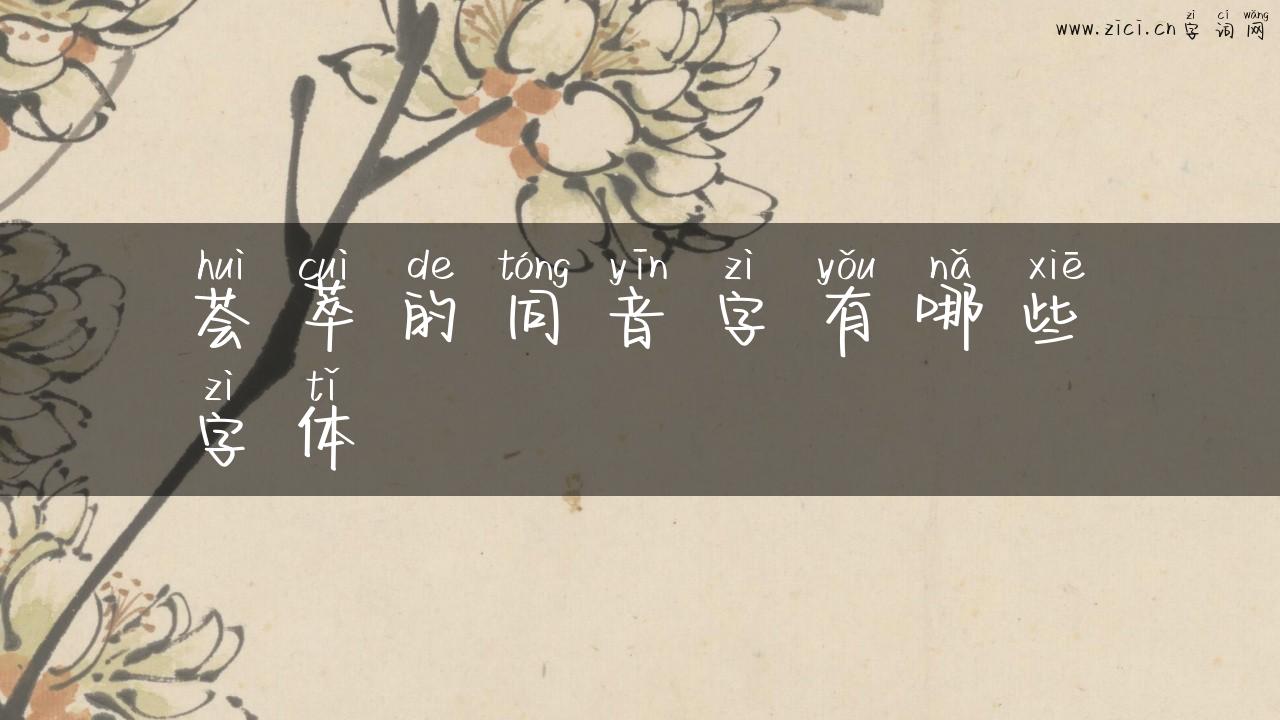 zì cí wǎng
www.zici.cn 字词网
huì cuì de tóng yīn zì yǒu nǎ xiē
荟萃的同音字有哪些
zì tǐ
字体